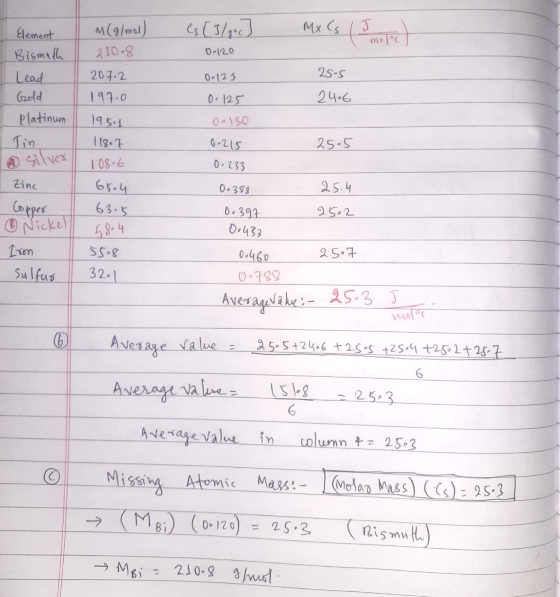 Element M(g/mol) Cs [J/g°c] M x Cs (J/mol°c)
Bismuth 210.8 0.120
Lead 207.2 0.123 25.5
Gold 197.0 0.125 24.6
Platinum 195.1 0.130
Tin 118.7 0.215 25.5
(A) Silver 108.6 0.233
Zinc 65.4 0.388 25.4
Copper 63.5 0.397 25.2
(B) Nickel 58.4 0.433
Iron 55.8 0.460 25.7
Sulfur 32.1 0.788
Average value:- 25.3 J/mol°c.
(b) Average value = 25.5+24.6+25.5+25.4+25.2+25.7 / 6
Average value = 151.8 / 6 = 25.3
Average value in column 4 = 25.3
(c) Missing Atomic Mass:- (Molar Mass) (Cs) = 25.3
→ (MBi) (0.120) = 25.3 (Bismuth)
→ MBi = 210.8 g/mol.